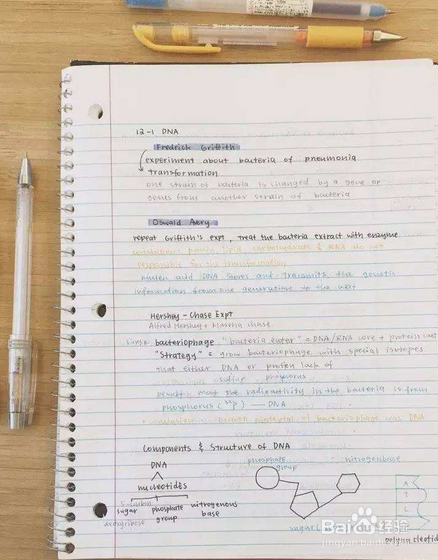 12-1 DNA
Fredrich Griffith
experiment about bacteria of pneumonia
transformation
one strain of bacteria is changed by a gene or
genes from another strain of bacteria
Oswald Avery
repeat Griffith's expt, treat the bacteria extract with enzyme
carbohydrate & RNA do not
responsible for the transformation
and DNA stores and transmits the genetic
information from one generation to the next
Hershey - Chase Expt
Alfred Hershey & Martha Chase
bacteriophage "bacteria eater" = DNA/RNA core + protein coat
"Strategy" = grow bacteriophage with special isotopes
that either DNA or protein lack of
the radioactivity in the bacteria is from
phosphorus (32p) — DNA
genetic material of bacteriophage was DNA
Components & Structure of DNA
DNA
nucleotides
sugar phosphate group nitrogenous base
phosphate group
nitrogen base
sugar
A
T
polynucleotide
Baidu 经验
jingyan.baidu.com